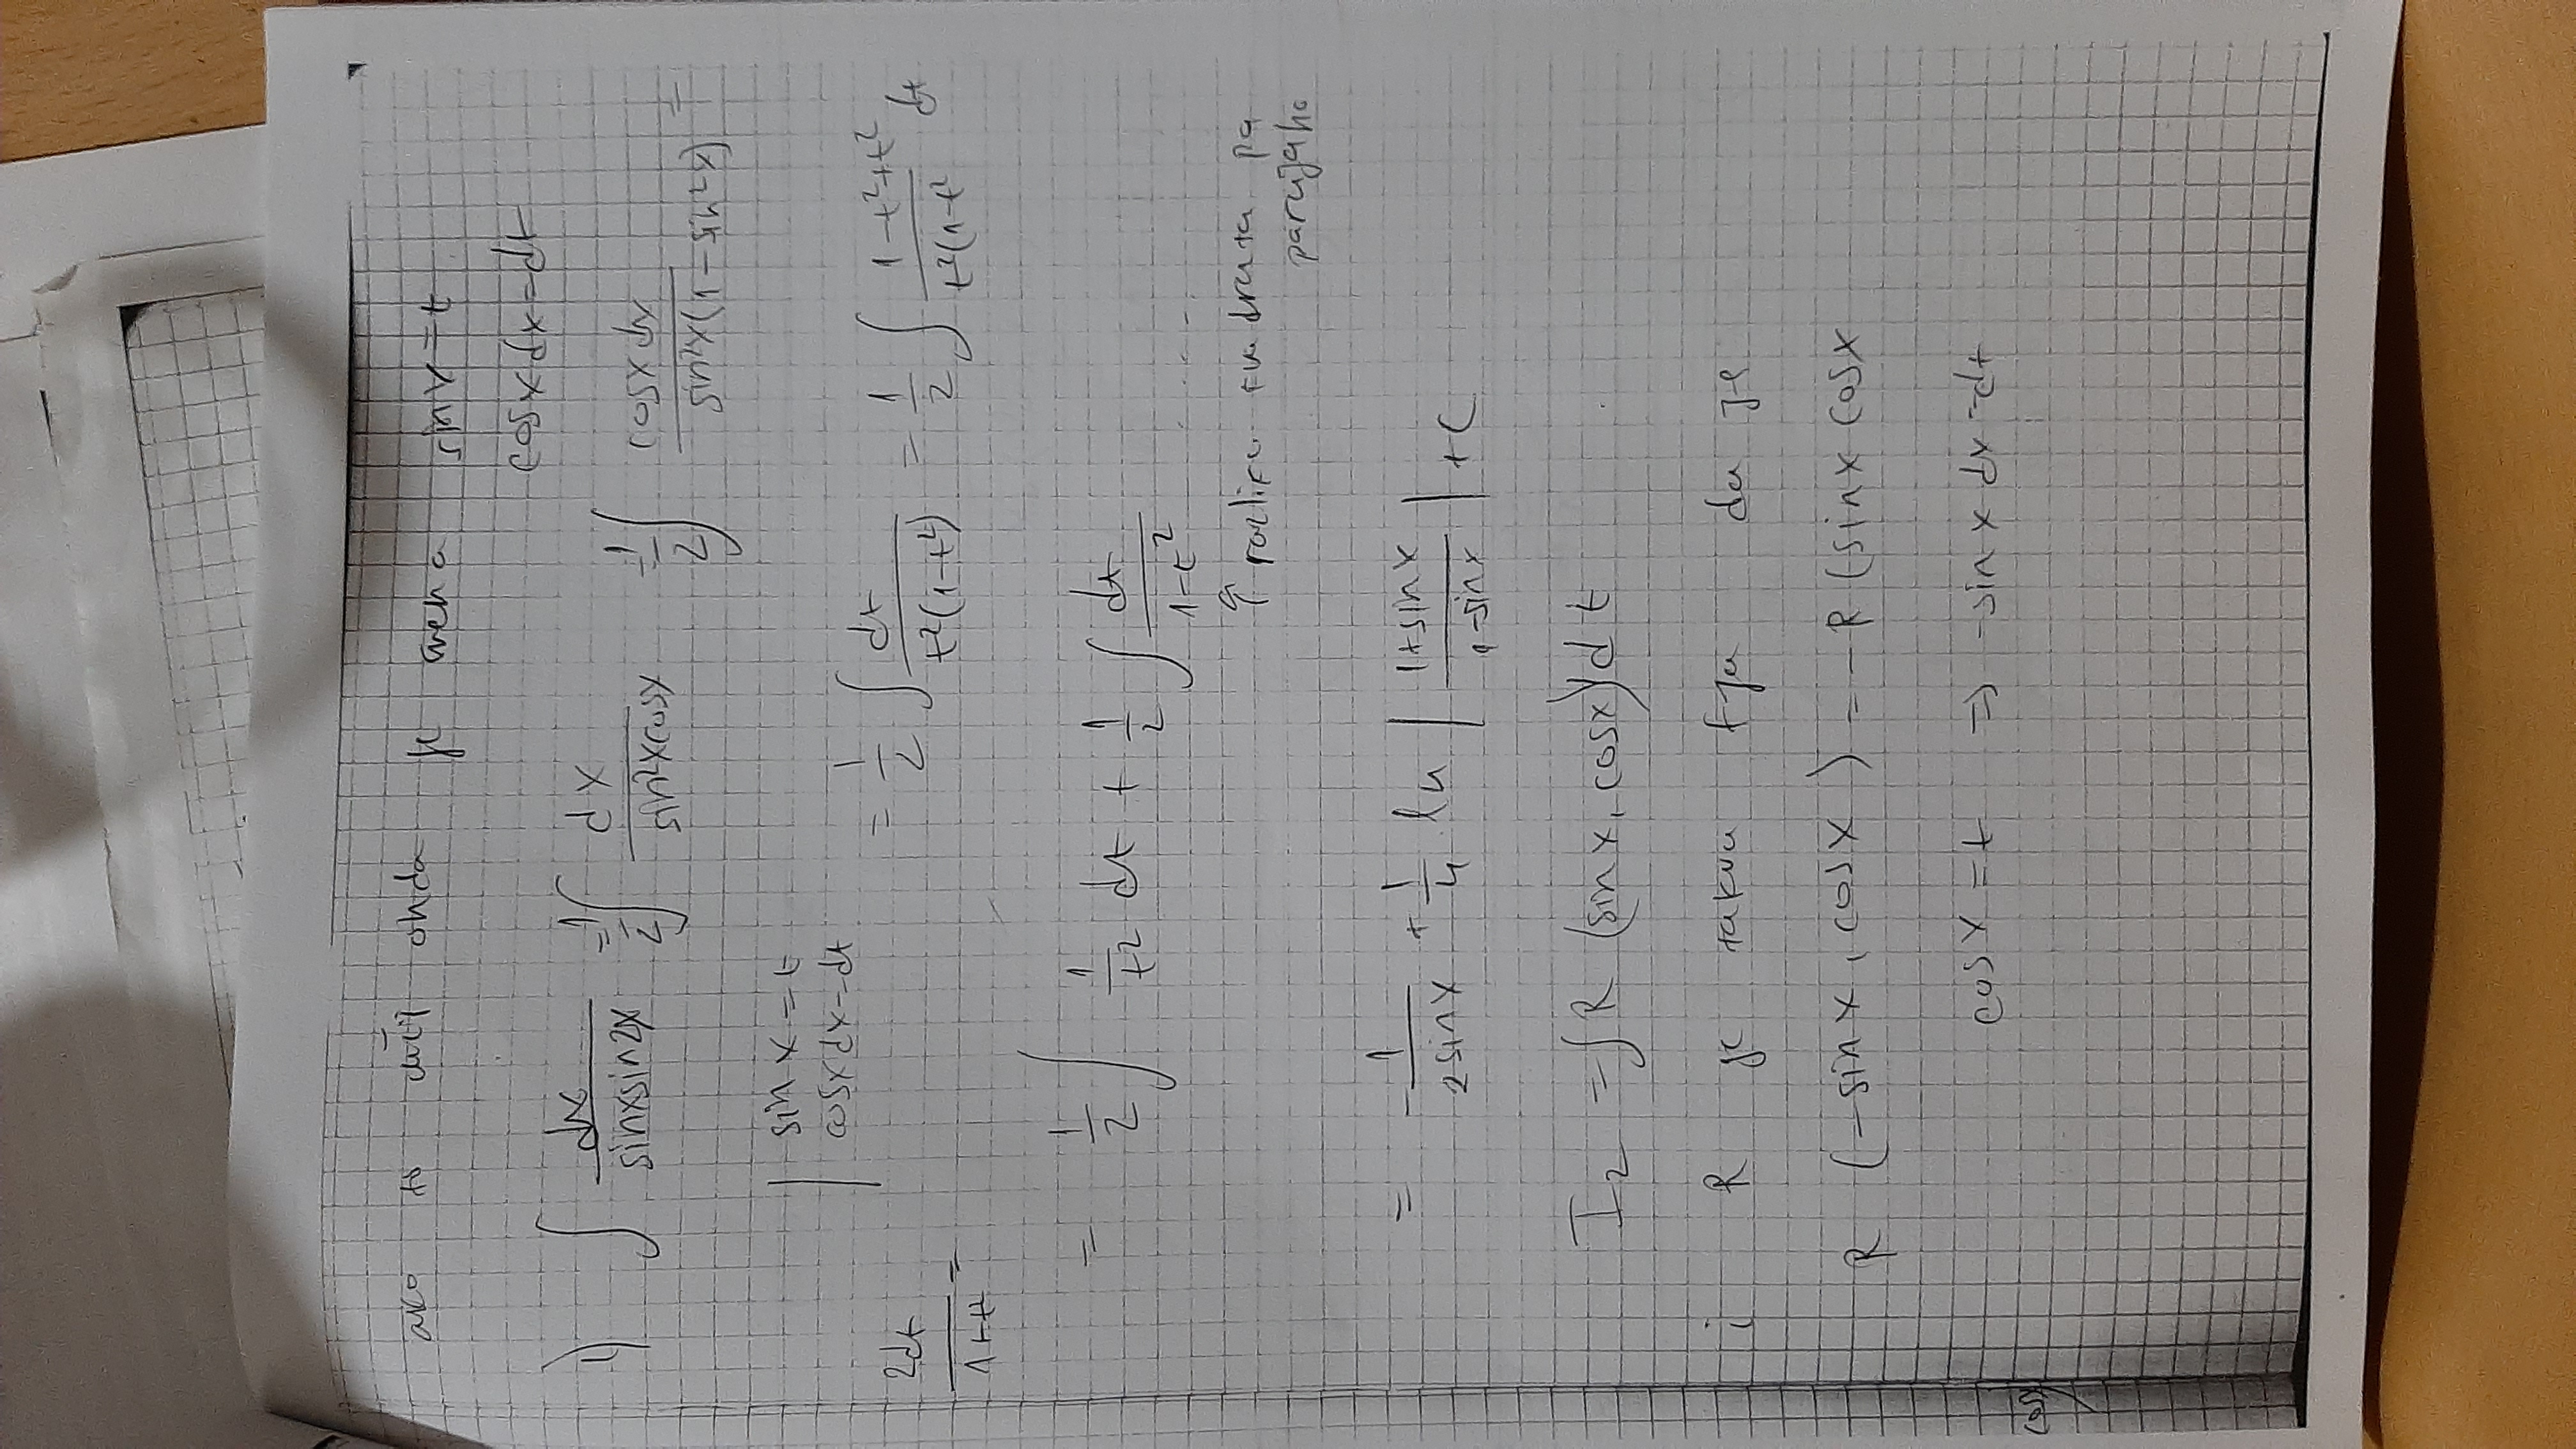 ako to onda je smena sinx=t
cosxdx=dt
1) ∫ dx/(sinxsin2x) = 1/2 ∫ dx/(sin²xcosx) = 1/2 ∫ cosxdx/(sin²x(1-sin²x)) =
| sinx=t
cosxdx=dt
= 1/2 ∫ dt/(t²(1-t²)) = 1/2 ∫ (1-t²+t²)/(t²(1-t²) dt
= 1/2 ∫ 1/t² dt + 1/2 ∫ dt/(1-t²)
↑ razlika kvadrata pa
= -1/(2sinx) + 1/4 ln |(1+sinx)/(1-sinx)| + C
I₂ = ∫R (sinx, cosx)dt
i R je takva fja da je
R (-sinx, cosx) = -R (sinx cosx
cosx=t ⇒ -sinx dx=dt
cosx